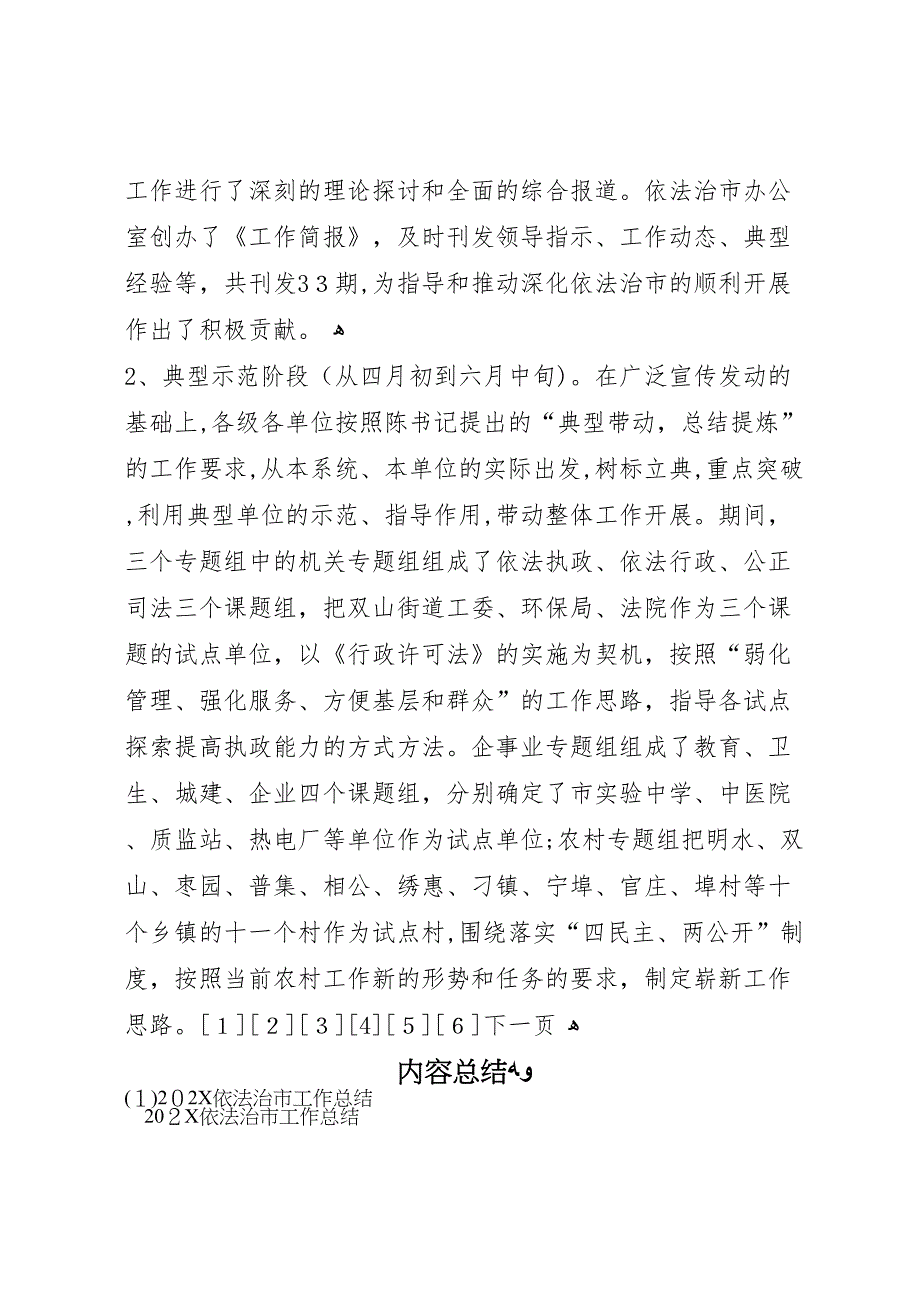 工作进行了深刻的理论探讨和全面的综合报道。依法治市办公
室创办了《工作简报》，及时刊发领导指示、工作动态、典型
经验等，共刊发3３期,为指导和推动深化依法治市的顺利开展
作出了积极贡献。 ﻫ
2、典型示范阶段（从四月初到六月中旬)。在广泛宣传发动的
基础上,各级各单位按照陈书记提出的“典型带动，总结提炼”
的工作要求,从本系统、本单位的实际出发,树标立典,重点突破
,利用典型单位的示范、指导作用,带动整体工作开展。期间，
三个专题组中的机关专题组组成了依法执政、依法行政、公正
司法三个课题组，把双山街道工委、环保局、法院作为三个课
题的试点单位，以《行政许可法》的实施为契机，按照“弱化
管理、强化服务、方便基层和群众”的工作思路，指导各试点
探索提高执政能力的方式方法。企事业专题组组成了教育、卫
生、城建、企业四个课题组，分别确定了市实验中学、中医院
、质监站、热电厂等单位作为试点单位;农村专题组把明水、双
山、枣园、普集、相公、绣惠、刁镇、宁埠、官庄、埠村等十
个乡镇的十一个村作为试点村,围绕落实“四民主、两公开”制
度，按照当前农村工作新的形势和任务的要求，制定崭新工作
思路。[１][２][３][4][５][６]下一页 ﻫ
内容总结ﻫﻭ
(１)2０2X依法治市工作总结
20２X依法治市工作总结